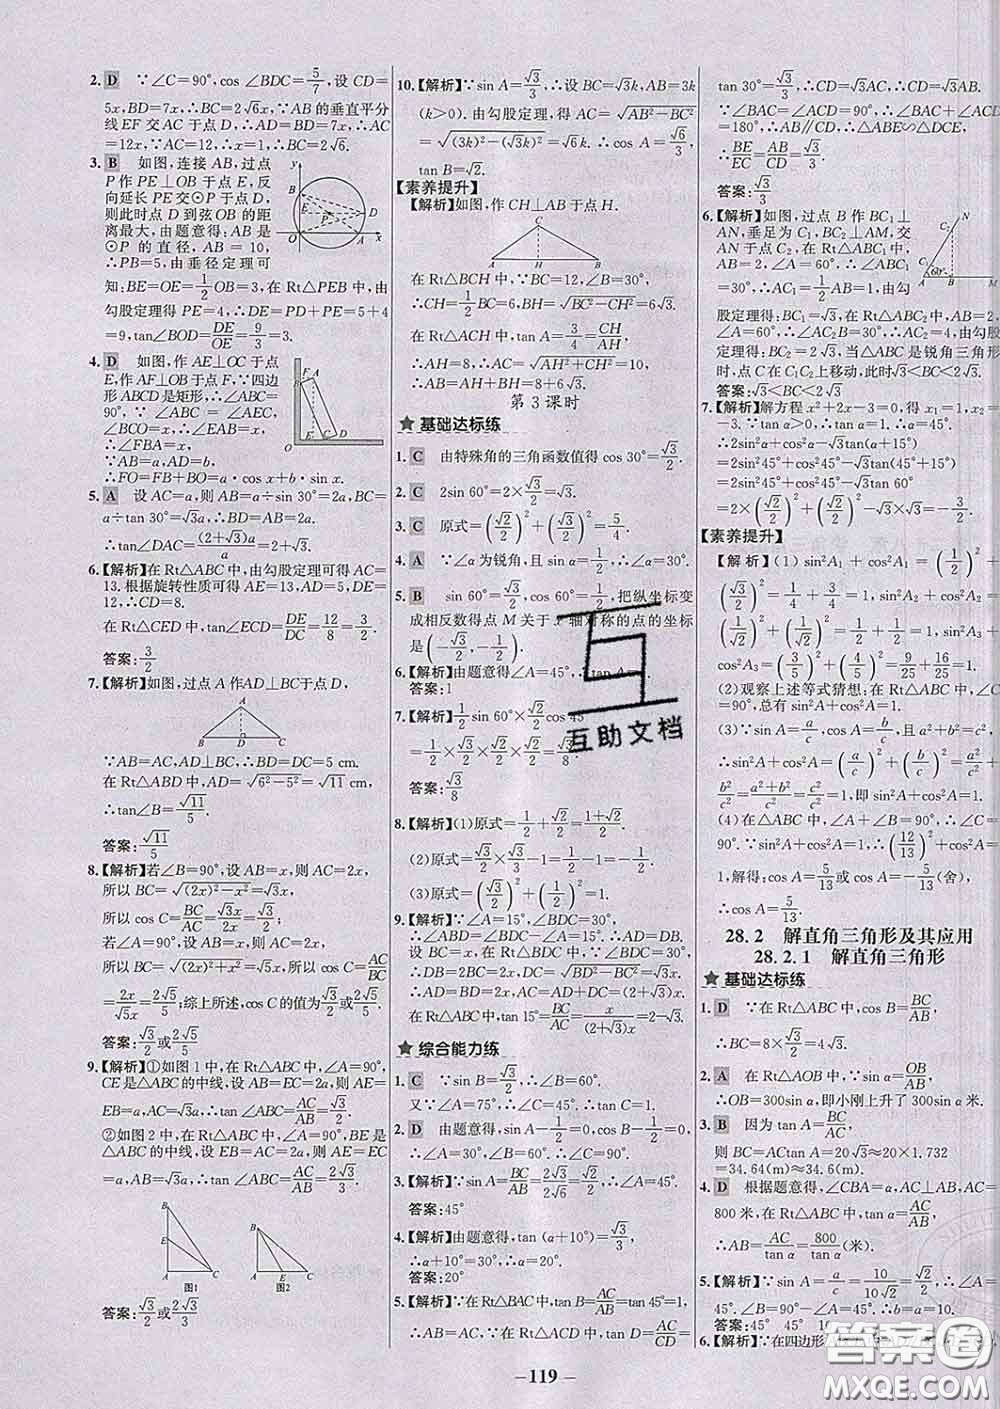 2. D ∵∠C=90°,cos ∠BDC=5/7,设 CD=
5x,BD=7x,∴BC=2√6x,∵AB的垂直平分
线EF交AC于点D,∴AD=BD=7x,∴AC=
12x,∵AC=12,∴x=1,∴BC=2√6.
3. B 如图,连接 AB,过点
P作PE⊥OB于点E,反
向延长PE交⊙P于点D,
则此时点D到弦OB的距
离最大,由题意得:AB是
⊙P的直径,AB=10,
∴PB=5,由垂径定理可
知:BE=OE=1/2OB=3,在Rt△PEB中,由
勾股定理得PE=4,∴DE=PD+PE=5+4
=9,tan∠BOD=DE/OE=9/3=3.
4. D 如图,作AE⊥OC于点
E,作AF⊥OB于点F,∵四边
形ABCD是矩形,∴∠ABC=
90°,∵∠ABC=∠AEC,
∠BCO=x,∴∠EAB=x,
∴∠FBA=x,
∵AB=a,AD=b,
∴FO=FB+BO=a·cos x+b·sin x.
5. A 设AC=a,则AB=a÷sin 30°=2a,BC=
a÷tan 30°=√3a,∴BD=AB=2a.
∴tan∠DAC=(2+√3)a/a=2+√3.
6.【解析】在Rt△ABC中,由勾股定理可得AC=
13.根据旋转性质可得AE=13,AD=5,DE=
12,∴CD=8.
在Rt△CED中,tan∠ECD=DE/DC=12/8=3/2.
答案:3/2
7.【解析】如图,过点A作AD⊥BC于点D,
∵AB=AC,AD⊥BC,∴BD=DC=5 cm.
在Rt△ABD中,AD=√(6²-5²)=√11 cm,
∴tan∠B=√11/5.
答案:√11/5
8.【解析】若∠B=90°,设AB=x,则AC=2x,
所以BC=√((2x)²-x²)=√3x,
所以cos C=BC/AC=√3x/2x=√3/2;
若∠A=90°,设AB=x,则AC=2x,
所以BC=√((2x)²+x²)=√5x,所以cos C=AC/BC=
2x/√5x=2√5/5;综上所述,cos C的值为√3/2或2√5/5.
答案:√3/2或2√5/5
9.【解析】①如图1中,在Rt△ABC中,∠A=90°,
CE是△ABC的中线,设AB=EC=2a,则AE=
EB=a,AC=√3a,∴tan ∠ABC=AC/AB=√3/2.
②如图2中,在Rt△ABC中,∠A=90°,BE是
△ABC的中线,设EB=AC=2a,则AE=EC
=a,AB=√3a,∴tan ∠ABC=AC/AB=2√3/3.
图1 图2
答案:√3/2或2√3/3
10.【解析】∵sin A=√3/3,∴设BC=√3k,AB=3k
(k>0).由勾股定理,得AC=√(AB²-BC²)
=√((3k)²-(√3k)²)=√6k.∴cos A=√6/3,
tan B=√2.
【素养提升】
【解析】如图,作CH⊥AB于点H.
在Rt△BCH中,∵BC=12,∠B=30°,
∴CH=1/2BC=6,BH=√(BC²-CH²)=6√3.
在Rt△ACH中,tan A=3/4=CH/AH,
∴AH=8,∴AC=√(AH²+CH²)=10.
∴AB=AH+BH=8+6√3.
第3课时
★基础达标练
1. C 由特殊角的三角函数值得cos 30°=√3/2.
2. C 2sin 60°=2×√3/2=√3.
3. C 原式=(√2/2)²+(√3/2)²=5/4.
4. A ∵∠α为锐角,且sin α=1/2,∴∠α=30°.
5. B sin 60°=√3/2,cos60°=1/2,把纵坐标变
成相反数得点M关于x轴对称的点的坐标
是(-√3/2,-1/2).
6.【解析】由题意得∠A=45°,∴tan A=
答案:1
7.【解析】1/2sin 60°×√2/2cos 45°
=1/2×√3/2×√2/2×√2/2=√3/8.
答案:√3/8
8.【解析】(1)原式=1/2+√2/2=(1+√2)/2.
(2)原式=√3/2×√3/2-1/2-1=-3/4.
(3)原式=(√3/2)²+(1/2)²=1.
9.【解析】∵∠A=15°,∠BDC=30°,
∴∠ABD=∠BDC-∠A=15°,∴AD=DB.
设BC=x,在Rt△BDC中,∵∠BDC=30°,
∴BD=2x,DC=√3x,∴AD=DB=2x,
∴AC=AD+DC=(2+√3)x,
在Rt△ABC中,tan 15°=BC/AC=x/(2+√3)x=2-√3.
★综合能力练
1. C ∵sin B=√3/2,∴∠B=60°.
又∵∠A=75°,∴∠C=45°,∴tan C=1.
2. D 由题意得,sin A-1/2=0,cos B-1/2=0,
∴∠A=30°,∠B=60°,∴∠C=90°.
3.【解析】∵sin A=BC/AB=2√3/2√6=√2/2,∴∠A=45°.
答案:45°
4.【解析】由题意得,tan (α+10°)=√3/3,
∴α+10°=30°,∴α=20°.
答案:20°
5.【解析】∵在Rt△BAC中,AC/AB=tan45°=1,
∴AC=AB,∵在Rt△ACD中,tan D=AC/CD=
tan30°=√3/3,∴CD=√3AC,∴CD=√3AB.
∵∠BAC=∠ACD=90°,∴∠BAC+∠ACD
=180°,∴AB∥CD,∴△ABE∽△DCE,
∴BE/EC=AB/CD=√3/3.
答案:√3/3
6.【解析】如图,过点B作BC₁⊥
AN,垂足为C₁,BC₂⊥AM,交AN
于点C₂,在Rt△ABC₁中,AB
=2,∠A=60°,∴∠ABC₁=
30°,∴AC₁=1/2AB=1,由勾
股定理得:BC₁=√3,在Rt△ABC₂中,AB=2,
∠A=60°,∴∠AC₂B=30°,∴AC₂=4,由勾股
定理得:BC₂=2√3,当△ABC是锐角三角形
时,点C在C₁C₂上移动,此时√3<BC<2√3.
答案:√3<BC<2√3
7.【解析】解方程x²+2x-3=0,得x₁=1,x₂=
-3.∵tan α>0,∴tan α=1,∴α=45°.
∴2sin²α+cos²α-√3tan(α+15°)
=2sin²45°+cos²45°-√3tan 60°
=2×(√2/2)²+(√2/2)²-√3×√3=-3/2.
【素养提升】
【解析】(1)sin²A₁+cos²A₁=(1/2)²+
(√3/2)²=1/4+3/4=1,sin²A₂+cos²A₂=
(1/√2)²+(1/√2)²=1/2+1/2=1,sin²A₃+
cos²A₃=(3/5)²+(4/5)²=9/25+16/25=1.
(2)观察上述等式猜想:在Rt△ABC中,∠C
=90°,总有sin²A+cos²A=1.
(3)∵sin A=a/c,cos A=b/c,∴sin²A+cos²A=a²/c²+
b²/c²=(a²+b²)/c²=c²/c²=1,即sin²A+cos²A=1.
(4)在△ABC中,∠A+∠B=90°,∴∠C=
90°.∵sin²A+cos²A=1,∴(12/13)²+cos²A=
1,解得:cos A=5/13或cos A=-5/13(舍),
∴cos A=5/13.
28.2 解直角三角形及其应用
28.2.1 解直角三角形
★基础达标练
1. D ∵在Rt△ABC中,cos B=BC/AB,
∴BC=8·4/5
2. A 在Rt△AOB中,∵sin α=OB/AB,
∴OB=300sin α,即小刚上升了300sin α米.
3. B 因为tan A=BC/AC,
则BC=ACtan A=20√3≈20×1.732
=34.64(m)≈34.6(m).
4. D 根据题意得,∠CBA=α,AC⊥AB,AC=
800米,在Rt△ABC中,∵tan α=AC/AB,
∴AB=AC/tan α=800/tan α(米).
5.【解析】∵sin A=a/c=10/10√2=√2/2,∴∠A=
45°.∠B=90°-45°=45°.∴b=a=10.
答案:45° 45° 10
6.【解析】∵在四边形
互助文档
答案圈
MXQE.COM
— 119 —